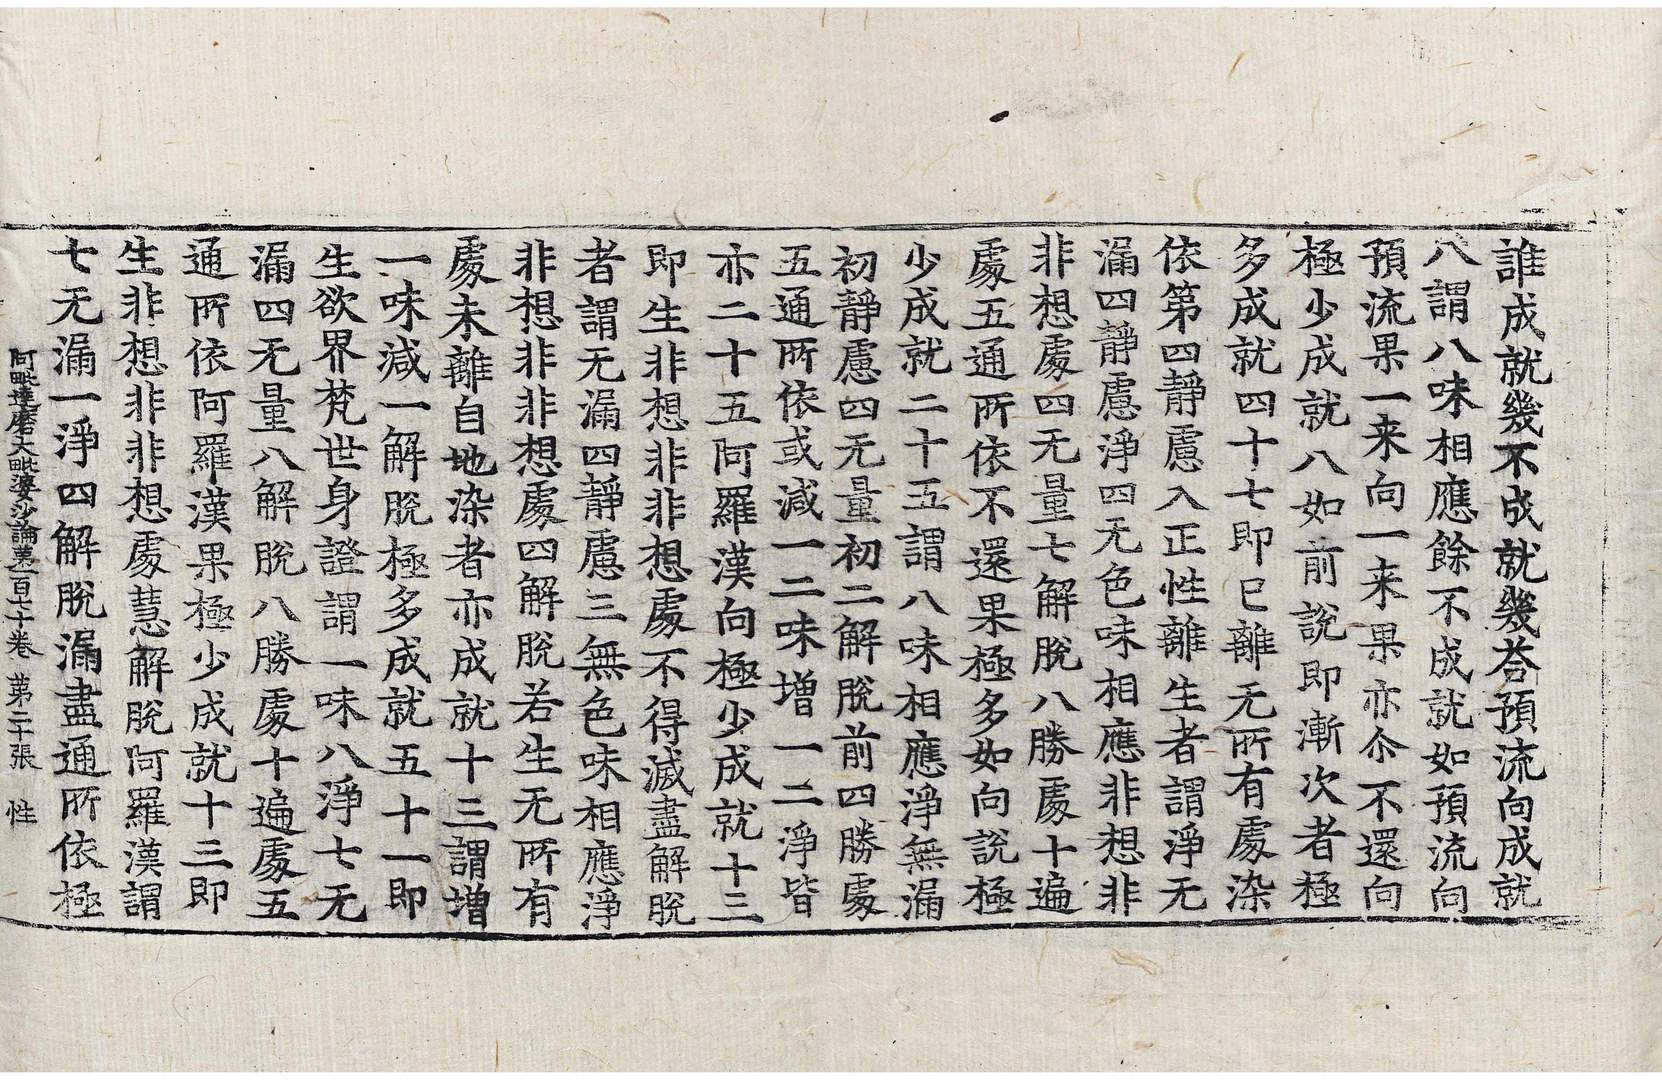 誰成就幾不成就幾荅預流向成就
八謂八味相應餘不成就如預流向
預流果一来向一来果亦尒不還向
極少成就八如前說即漸次者極
多成就四十七即已離无所有處染
依第四靜慮入正性離生者謂淨无
漏四靜慮淨四无色味相應非想非
非想處四无量七解脫八勝處十遍
處五通所依不還果極多如向說極
少成就二十五謂八味相應淨無漏
初靜慮四无量初二解脫前四勝處
五通所依或減一二味增一二淨皆
亦二十五阿羅漢向極少成就十三
即生非想非非想處不得滅盡解脫
者謂无漏四靜慮三無色味相應淨
非想非非想處四解脫若生无所有
處未離自地染者亦成就十三謂增
一味減一解脫極多成就五十一即
生欲界梵世身證謂一味八淨七无
漏四无量八解脫八勝處十遍處五
通所依阿羅漢果極少成就十三即
生非想非非想處慧解脫阿羅漢謂
七无漏一淨四解脫漏盡通所依極
阿毗達磨大毗婆沙論第一百七十卷 第二十張 性